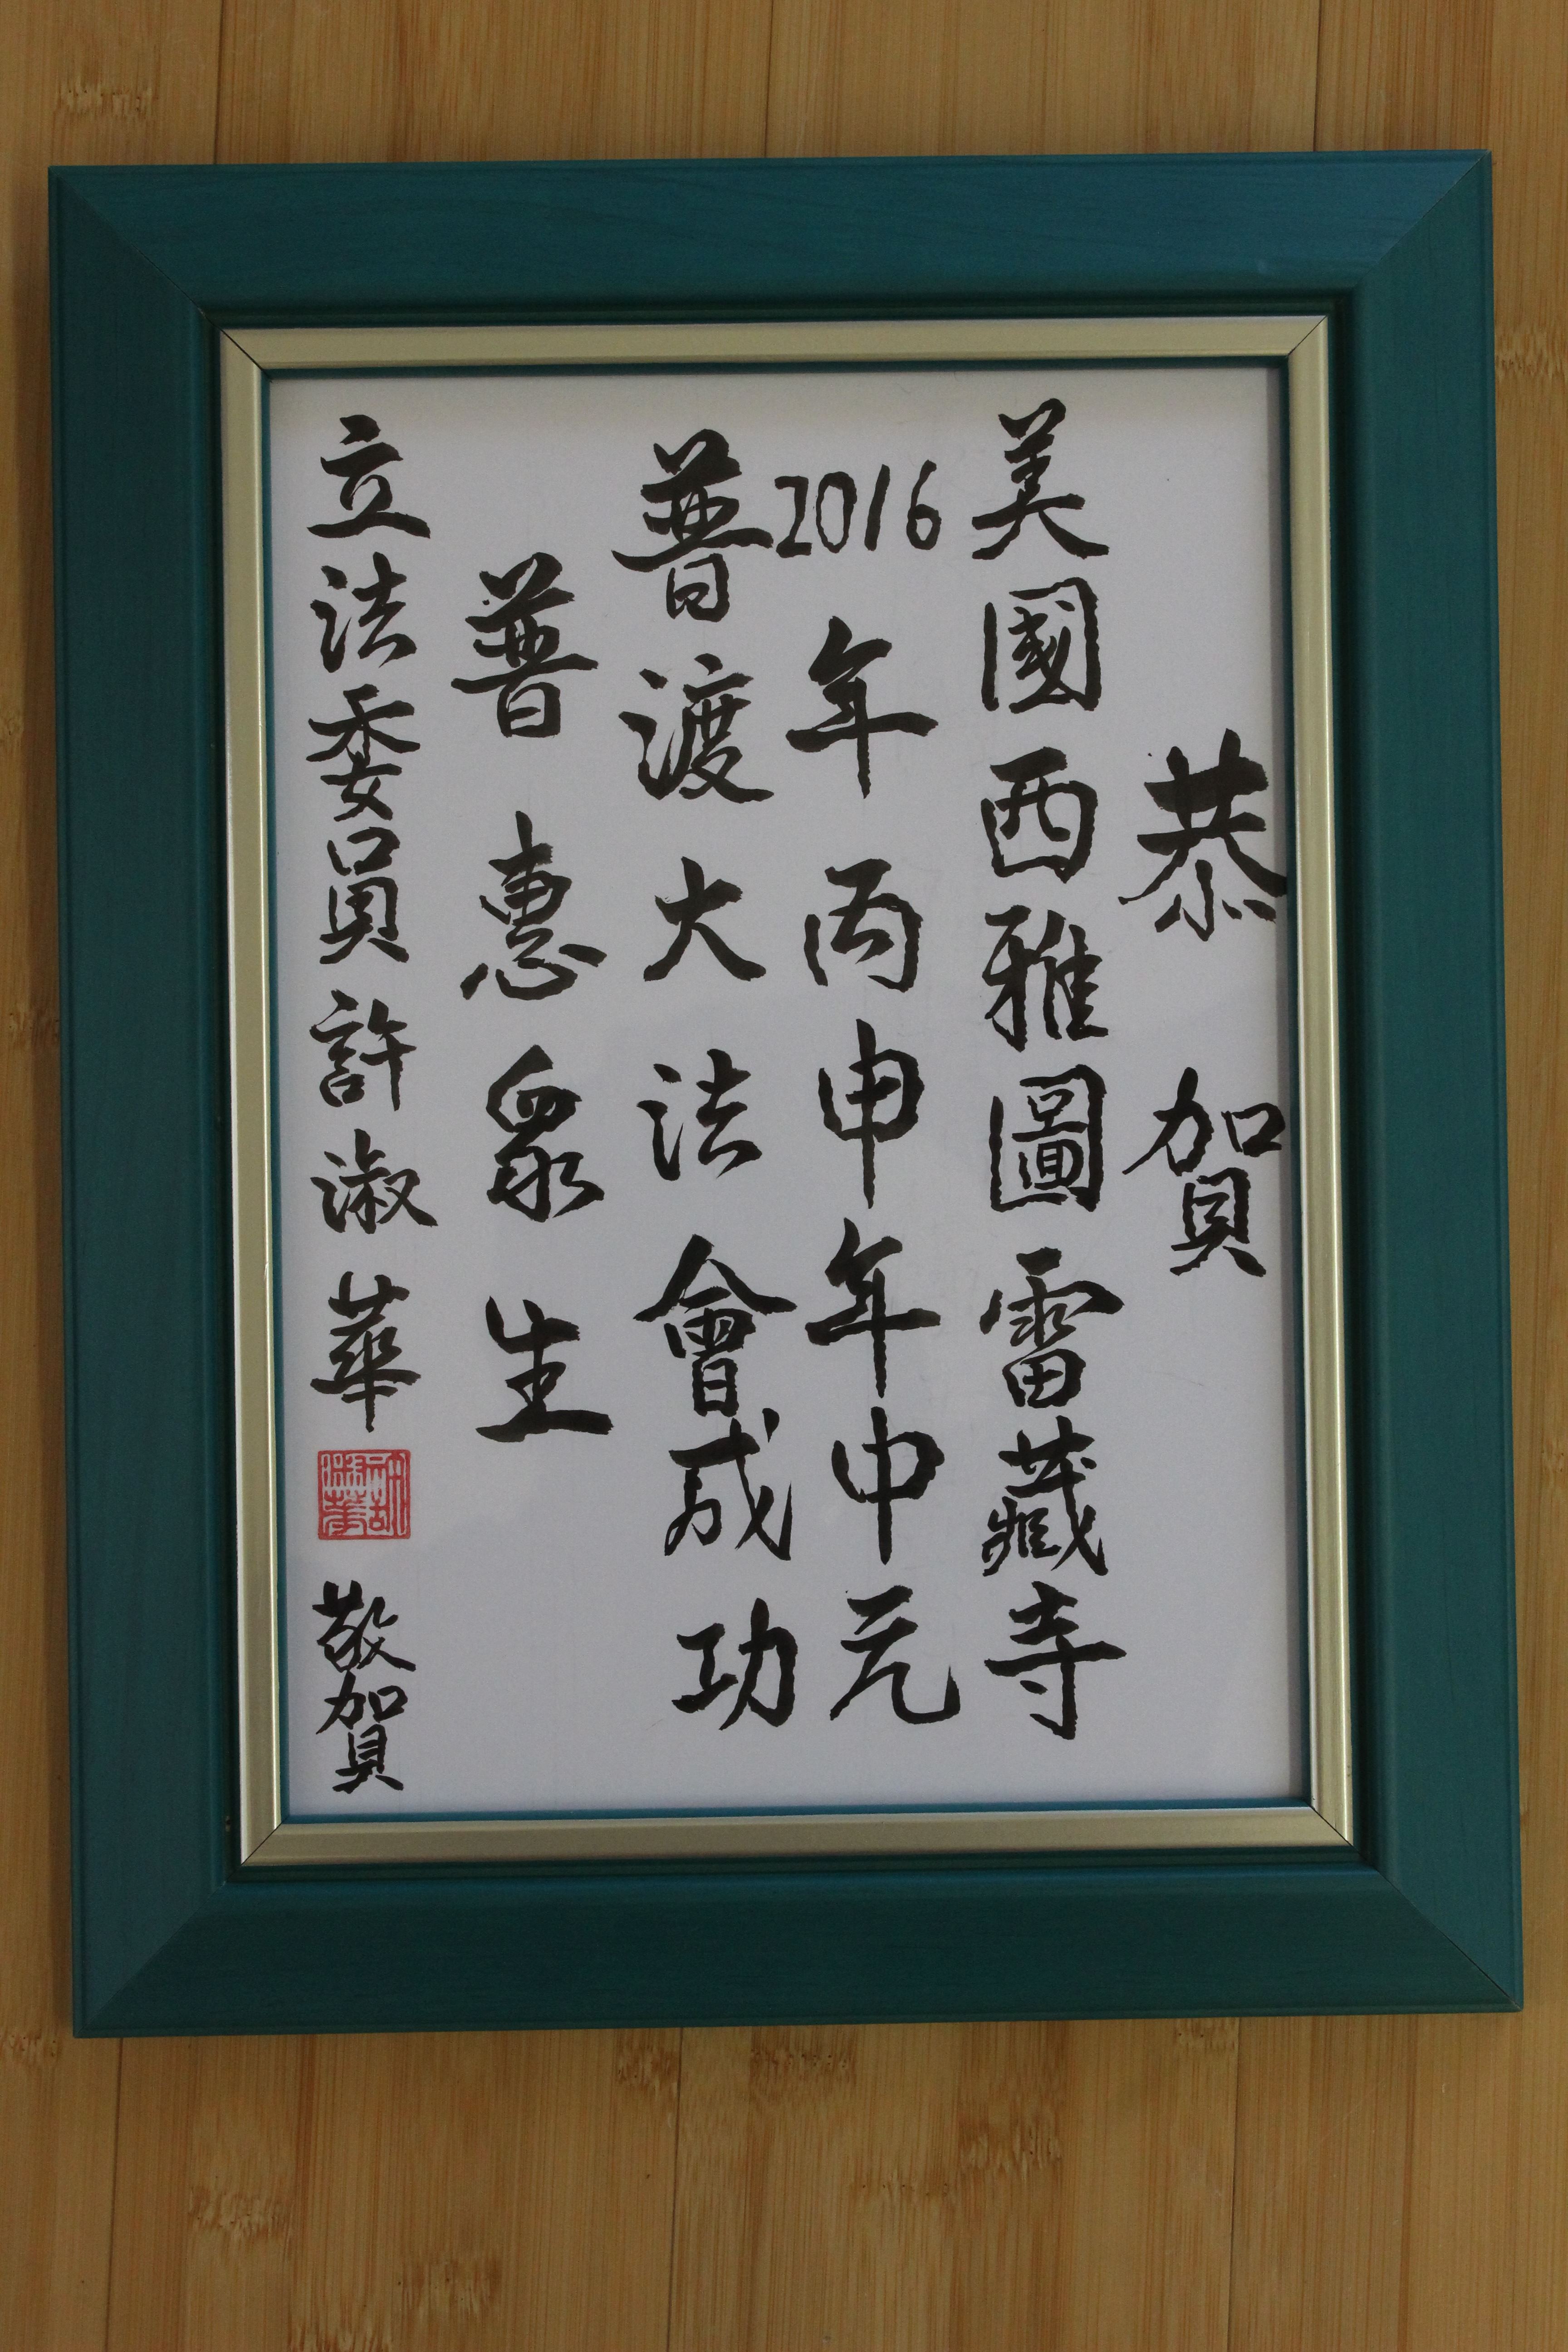 恭賀
美國西雅圖雷藏寺
2016年丙申年中元
普渡大法會成功
普惠眾生
立法委員許淑華
許淑華
敬賀